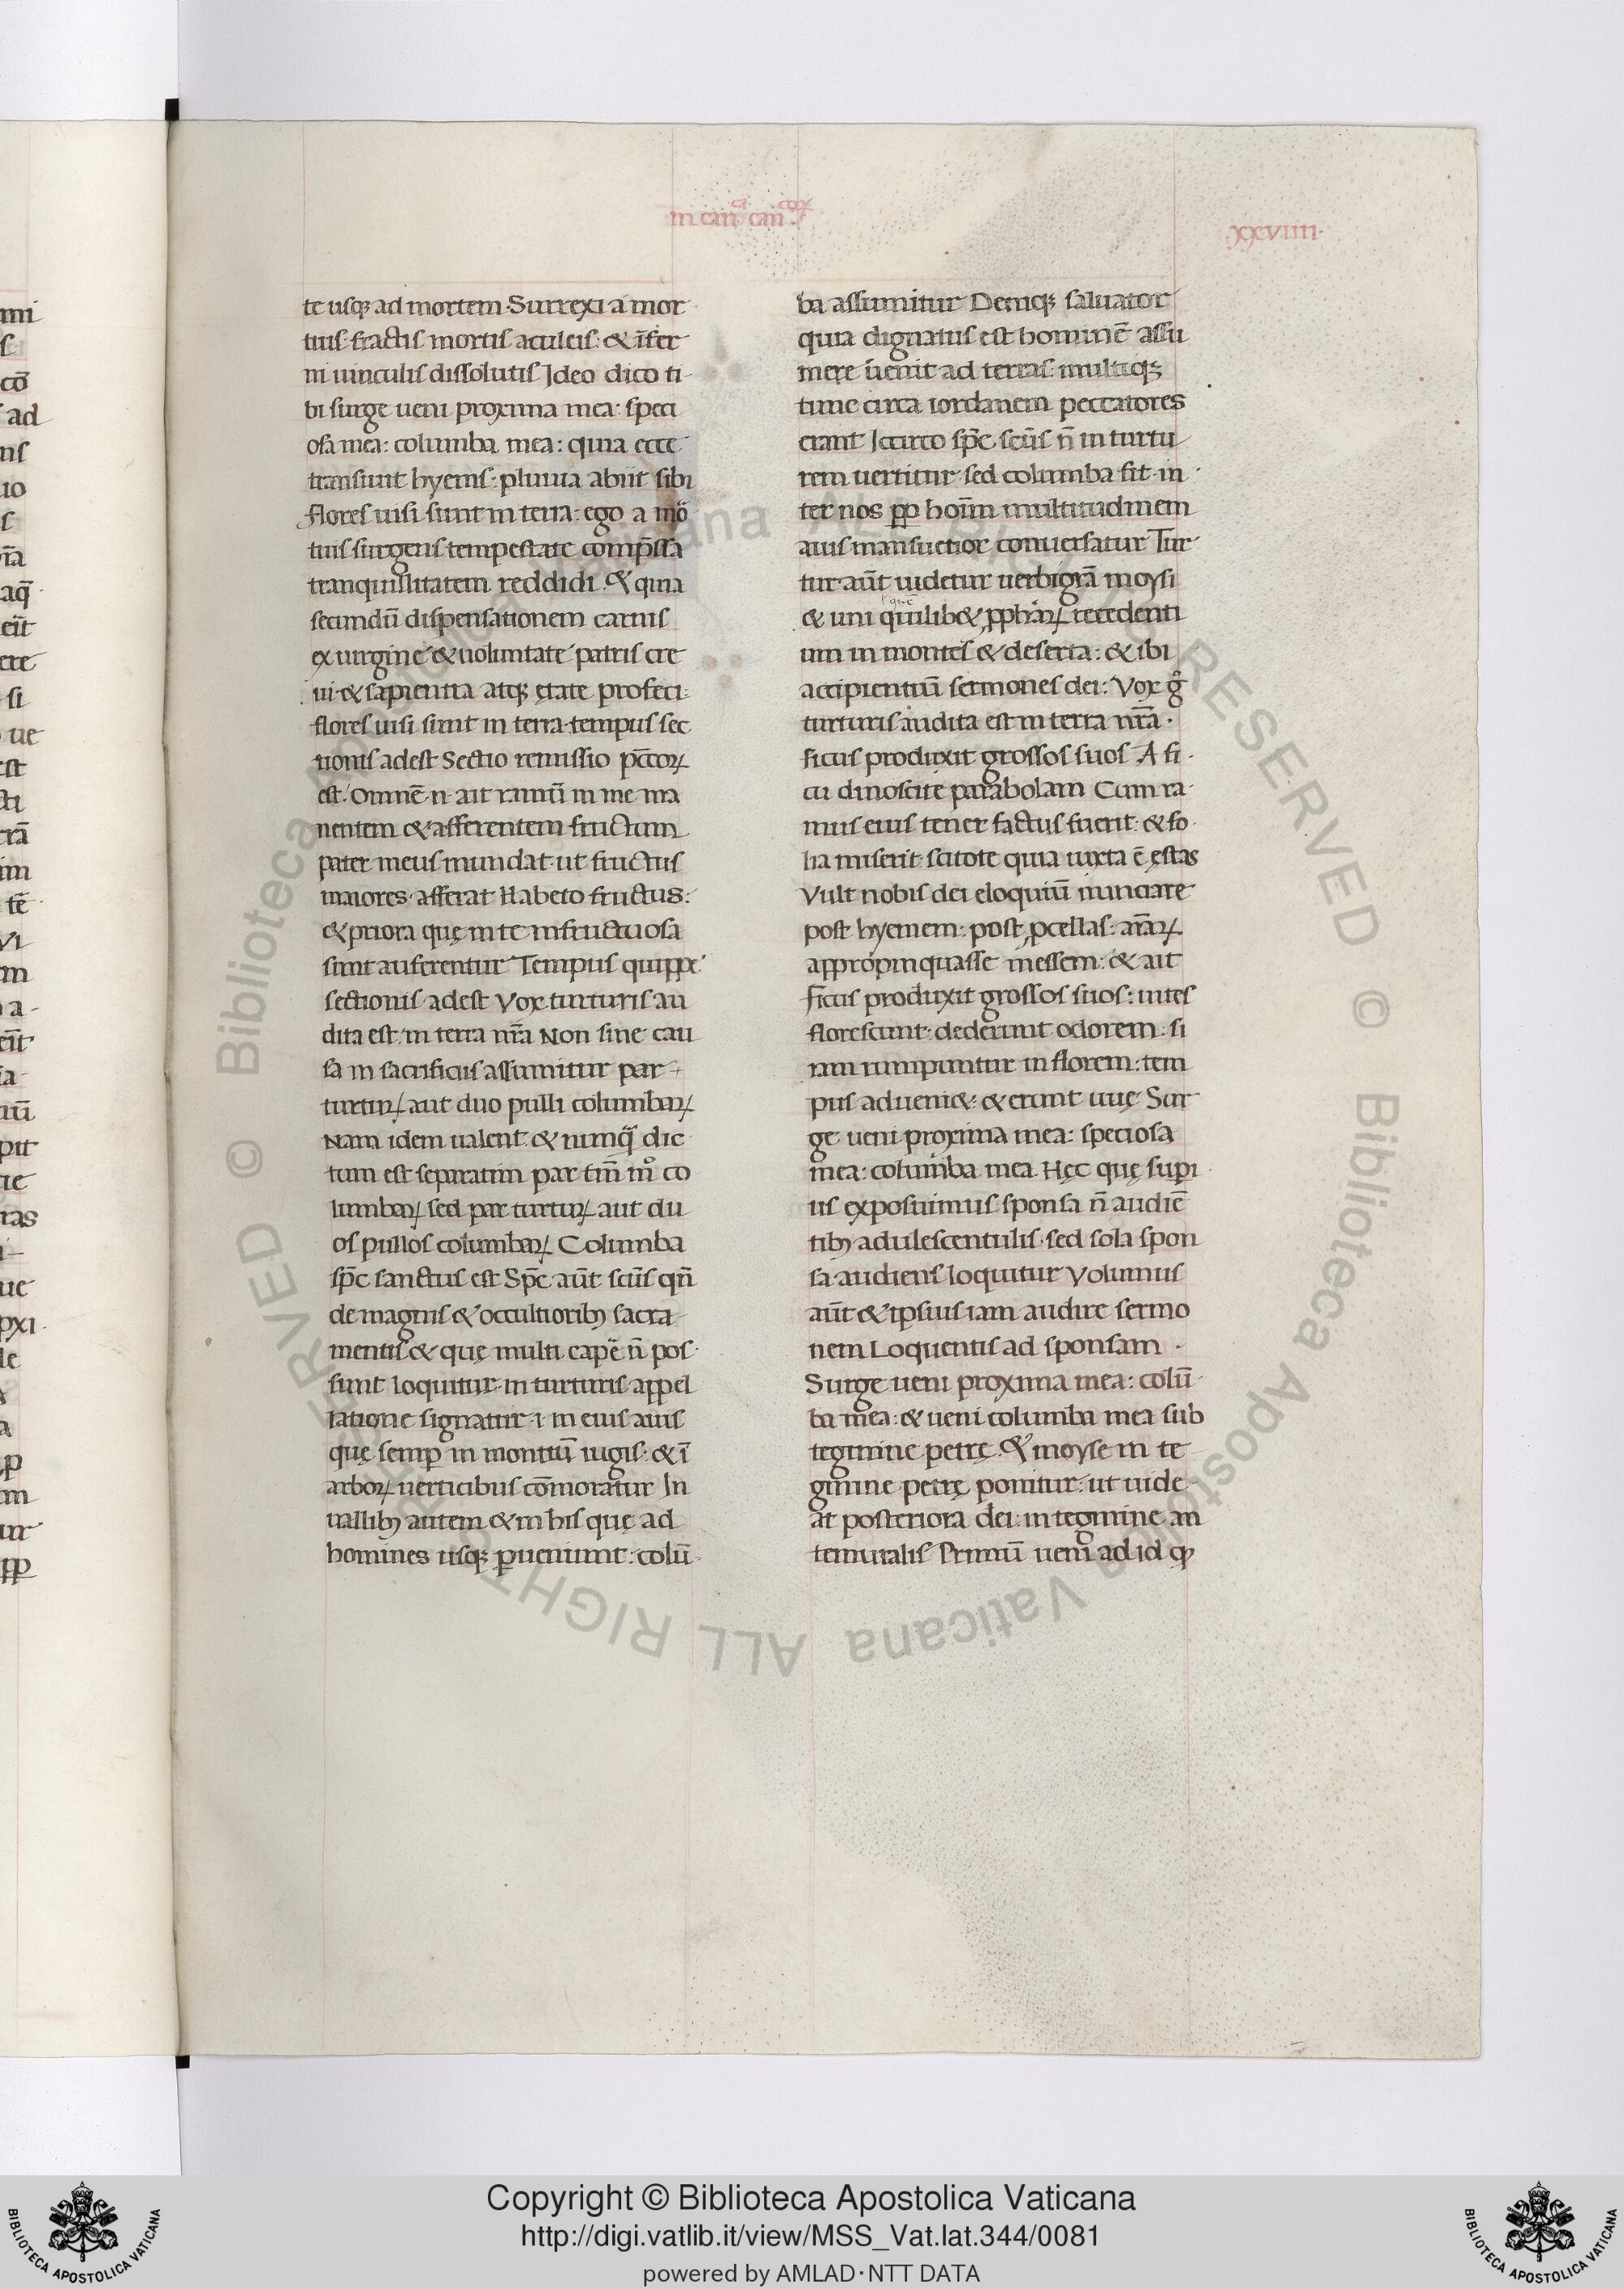 in can̄ ca can̄ coꝝ
xxviiii·
te usqꝫ ad mortem·Surrexi a mor
tuis·fractis mortis aculeis: & īfer
ni uinculis dissolutis Ideo dico ti
bi surge ueni proxima mea: speci
osa mea: columba mea: quia ecce
transiuit hyems·pluuia abiit sibi
flores uisi sunt in terra: ego a mo
tuis surgens tempestate comp̄ssa
tranquillitatem reddidi.& quia
secundū dispensationem carnis
ex uirgine & uoluntate patris cre
ui·& sapientia atqꝫ ętate profeci:
flores uisi sunt in terra·tempus sec
tionis adest Sectio remissio pc̄coꝝ
est. Omnē n̄ ait ramū in me ma
nentem & afferentem fructum
pater meus mundat·ut fructus
maiores·afferat Habeto fructus:
& priora quę in te infructuosa
sunt auferentur Tempus quippe
sectionis adest Vox turturis au
dita est in terra nr̄a Non sine cau
sa in sacrificiis assumitur par
turtuꝝ aut duo pulli columbaꝝ
Nam idem ualent & nunq̄ dic
tum est separatim par tm̄ mͦ co
lumbaꝝ sed par turtuꝝ aut du
os pullos columbaꝝ Columba
sp̄c sanctus est Sp̄c aūt scūs qn̄
de magnis & occultioribꝫ sacra
mentis & quę multi cape n̄ pos
sunt loquitur·in turturis appel
latione signatur·i·in eius auis
quę semꝑ in montiū iugis: & ī
arboꝝ uerticibus cōmoratur In
uallibꝫ autem & in his quę ad
homines usqꝫ ꝑueniunt: colū
ba assumitur Deniqꝫ saluator
quia dignatus est hominē assu
mere uenit ad terras: multiqꝫ
tunc circa iordanem peccatores
erant Iccirco sp̄c scūs n̄ in turtu
rem uertitur·sed columba fit·in
ter nos ꝓp hoīm multitudinem
auis mansuetior conuersatur Tur
tur aūt uidetur uerbi grā moysi
& uni cuilib& ꝓphaꝝ recedenti
um in montes & deserta: & ibi
accipientiū sermones dei: Vox gͦ
turturis audita est in terra nr̄a·
ficus produxit grossos suos A fi
cu dinoscite parabolam Cum ra
mus eius tener factus fuerit: & fo
lia miserit·scitote quia iuxta ē ęstas
Vult nobis dei eloquiū nunciare
post hyemem: post ꝓcellas: aīaꝝ
appropinquasse messem: & ait
ficus produxit grossos suos: uites
florescunt·dederunt odorem: si
iam rumpuntur in florem: tem
pus adueni&: & erunt uuę Sur
ge ueni proxima mea: speciosa
mea: columba mea Hęc quę supi
us exposuimus sponsa n̄ audiē
tibꝫ adulescentulis·sed sola spon
sa audiens loquitur Volumus
aūt & ipsius iam audire sermo
nem Loquentis ad sponsam·
Surge ueni proxima mea: colū
ba mea: & ueni columba mea sub
tegmine petrę & moyse in te
gmine petrę ponitur: ut uide
at posteriora dei·in tegmine an
temuralis Primū ueni ad id qꝫ
© Biblioteca Apostolica Vaticana ALL RIGHTS RESERVED
© Biblioteca Apostolica Vaticana ALL RIGHTS RESERVED
Copyright © Biblioteca Apostolica Vaticana
http://digi.vatlib.it/view/MSS_Vat.lat.344/0081
powered by AMLAD·NTT DATA
BIBLIOTECA APOSTOLICA VATICANA
BIBLIOTECA APOSTOLICA VATICANA